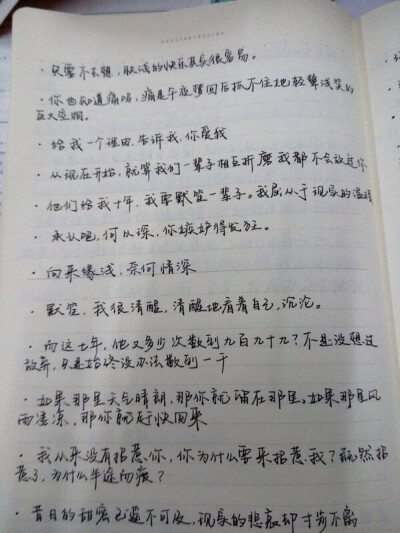 ·只要不去想，肤浅的快乐其实很容易。
·你也知道痛吗，痛是午夜梦回后抓不住艳轻颦浅笑的
巨大空洞。
·给我一个理由，告诉我，你爱我
·从现在开始，就算我们一辈子相互折磨我都不会放过你
·他们给我十年，我要默笙一辈子。我屈从于现实的温暖
·承认吧，何以琛，你嫉妒得发狂。
·向来缘浅，奈何情深
·默笙，我很清醒，清醒地看着自己，沉沦。
·而这七年，他又多少次数到九百九十九？不是没想过
放弃，只是始终没办法数到一千
·如果那里天气晴朗，那你就留在那里。如果那里风
雨凄凉，那你就赶快回来
·我从来没有招惹你，你为什么要来招惹我？既然招
惹了，为什么半途而废？
·昔日的甜蜜已遥不可及，现实的悲哀却寸步不离